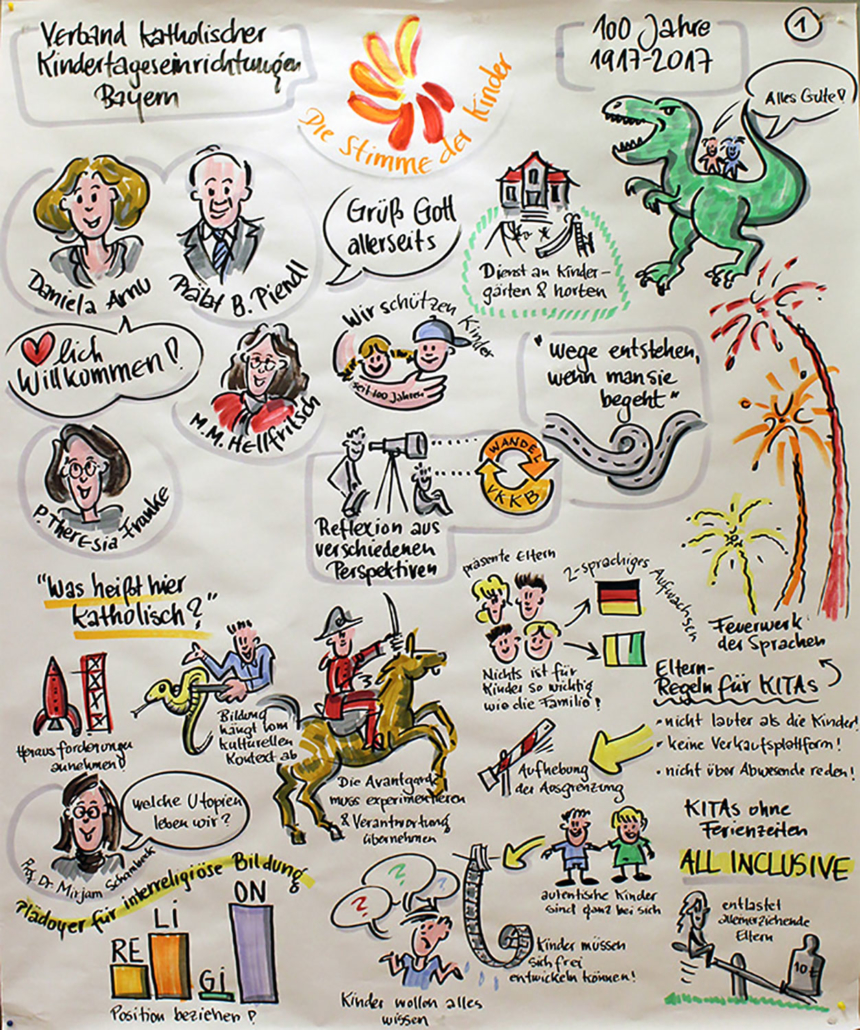 Verband Katholischer
Kindertageseinrichtungen
Bayern
Die Stimme der Kinder
100 Jahre
1917-2017
1
Alles Gute!
Daniela Arnu
Prälat B. Piendl
Grüß Gott
allerseits
Dienst an Kinder-
gärten & horten
lich
Willkommen!
M.M. Hellfritsch
Wir schützen Kinder
seit 100 Jahren
"Wege entstehen,
wenn man sie
begeht"
P. Theresia Franke
WANDEL
VKKB
Reflexion aus
verschiedenen
Perspektiven
"Was heißt hier
katholisch?"
Herausforderungen
annehmen!
Bildung
hängt vom
kulturellen
Kontext ab
Die Avantgard
muss experimentieren
& Verantwortung
übernehmen
präsente Eltern
2-sprachiges Aufwachsen
Nichts ist für
Kinder so wichtig
wie die Familie!
Feuerwerk
der Sprachen
Eltern-
Regeln für KITAs
- nicht lauter als die Kinder!
• keine Verkaufsplattform!
• nicht über Abwesende reden!
Aufhebung
der Ausgrenzung
Prof. Dr. Mirjam
welche Utopien
leben wir?
Plädoyer für interreligiöse Bildung
RE
Li
Gi
ON
Position beziehen!
?
?
?
Kinder wollen alles
wissen
autentische Kinder
sind ganz bei sich
Kinder müssen
sich frei
entwickeln können!
KITAs ohne
Ferienzeiten
ALL INCLUSIVE
entlastet
alleinerziehende
Eltern
10t